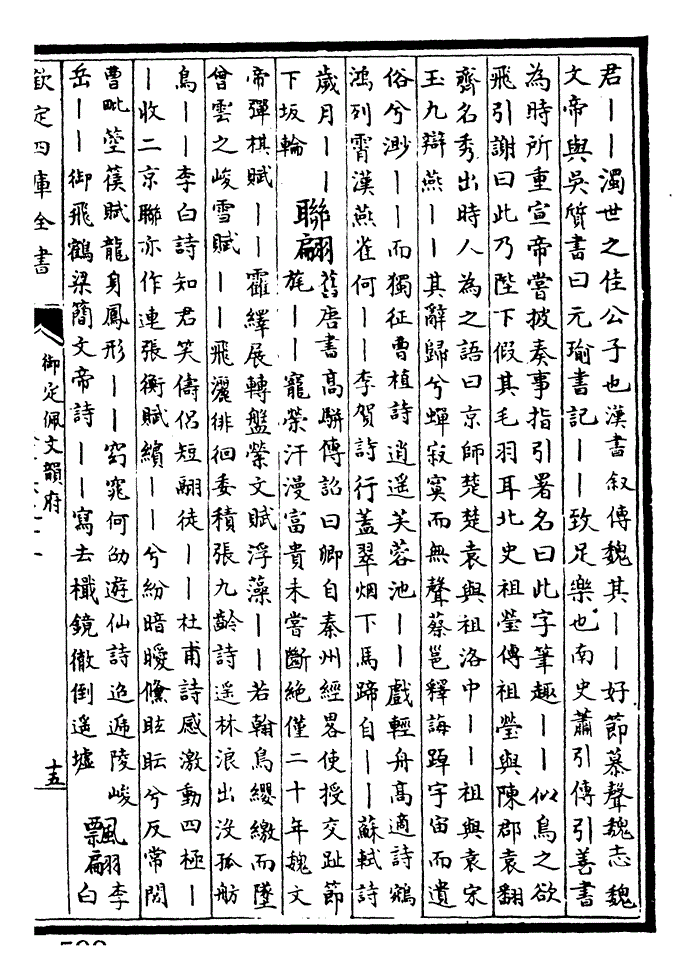 君丨丨濁世之佳公子也漢書叙傳魏其丨丨好節慕聲魏志魏
文帝與吳質書曰元瑜書記丨丨致足樂也南史蕭引傳引善書
為時所重宣帝嘗披奏事指引署名曰此字筆趣丨丨似鳥之欲
飛引謝曰此乃陛下假其毛羽耳北史祖瑩傳祖瑩與陳郡袁翻
齊名秀出時人為之語曰京師楚楚袁與祖洛中丨丨祖與袁宋
玉九辯燕丨丨其辭歸兮蟬寂寞而無聲蔡邕釋誨踔宇宙而遺
俗兮渺丨丨而獨征曹植詩逍遥芙蓉池丨丨戲輕舟高適詩鵷
鴻列霄漢燕雀何丨丨李賀詩行蓋翠烟下馬蹄自丨丨蘇軾詩
歲月丨丨
下坂輪
聯翩
舊唐書高駢傳詔曰卿自秦州經畧使授交趾節
旄丨丨寵榮汗漫富貴未嘗斷絕僅二十年魏文
帝彈棋賦丨丨霍繹展轉盤縈文賦浮藻丨丨若翰鳥纓繳而墜
曾雲之峻雪賦丨丨飛灑徘徊委積張九齡詩遥林浪出没孤舫
鳥丨丨李白詩知君笑儔侣短翮徒丨丨杜甫詩感激動四極丨
丨收二京聯亦作連張衡賦繽丨丨兮紛暗曖儵眩眃兮反常閭
曹毗箜篌賦龍身鳳形丨丨窈窕何劭遊仙詩迢遞陵峻
岳丨丨御飛鶴梁簡文帝詩丨丨寫去檝鏡徹倒遥墟
飄翩
李
白
欽定四庫全書
御定佩文韻府
十五